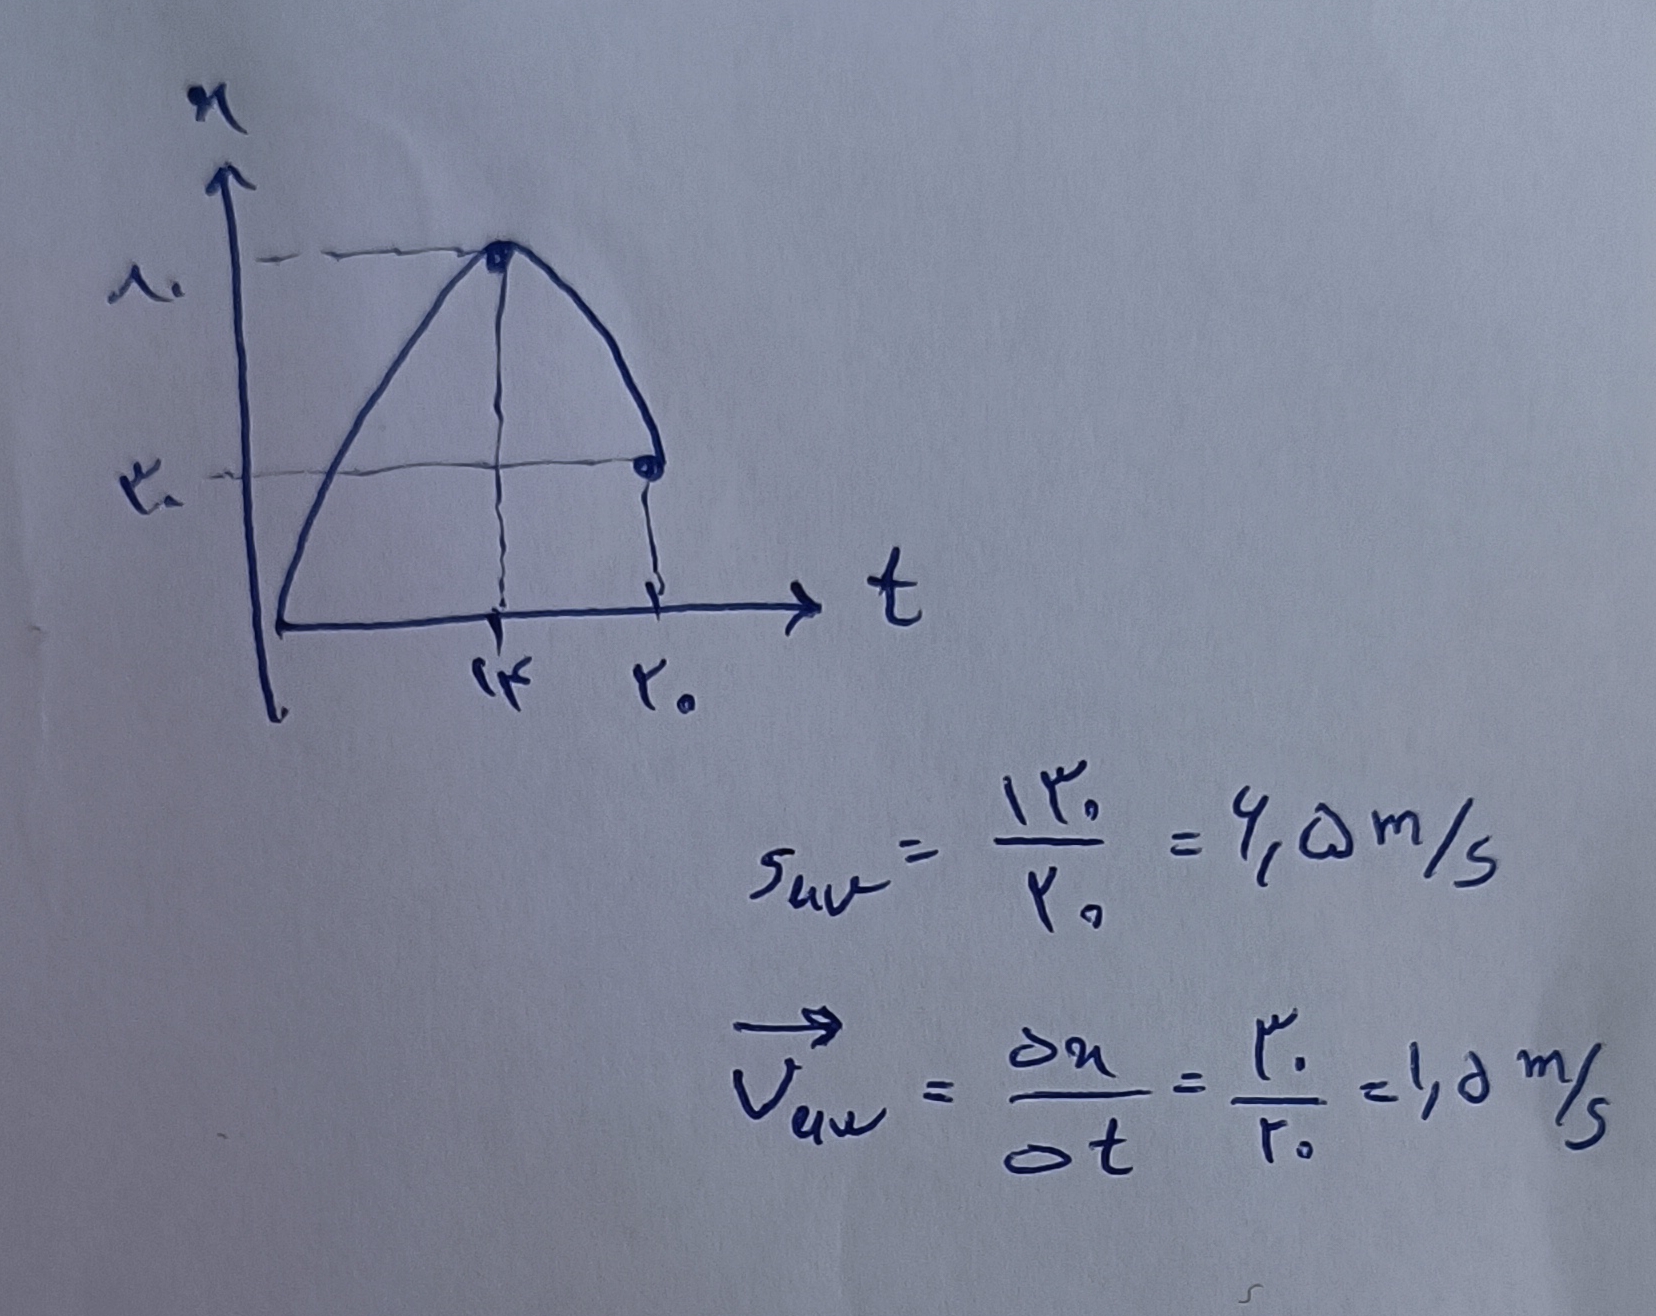 x
۸۰
۳۰
t
۱۴ ۲۰
s_av = ۱۳۰/۲۰ = ۶,۵ m/s
V⃗_av = Δx/Δt = ۳۰/۲۰ = ۱,۵ m/s